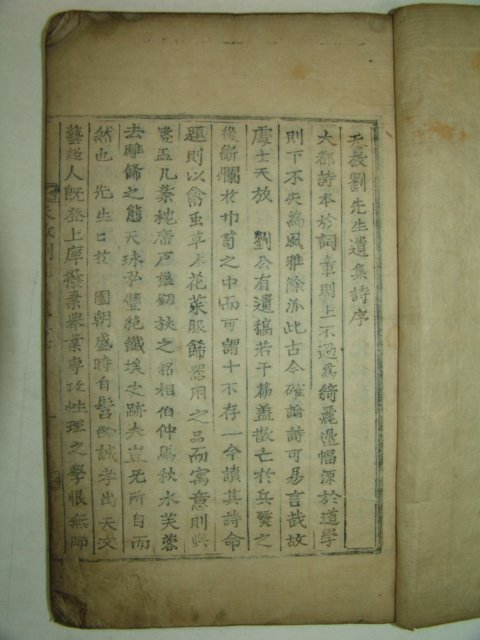 天放劉先生遺集詩序
大都詩本於詞章則上不過爲綺麗邊幅源於道學
則下不失爲風雅餘派此古今確論詩可易言哉故
處士天放 劉公有遺稿若干篇盖散亡於兵燹之
後斷爛於巾笥之中而可謂十不存一今讀其詩命
題則以禽虫草木花菜服餙器用之品而寓意則與
槃盂几案枕席戶楹釰杖之銘相伯仲焉秋水芙蓉
去雕餙之態天球弘璧絶纖埃之跡夫豈无所自而
然也 先生口於 國朝盛時自髫齡誠孝出天文
藝超人旣登上庠撥棄擧業專攻性理之學恨無師